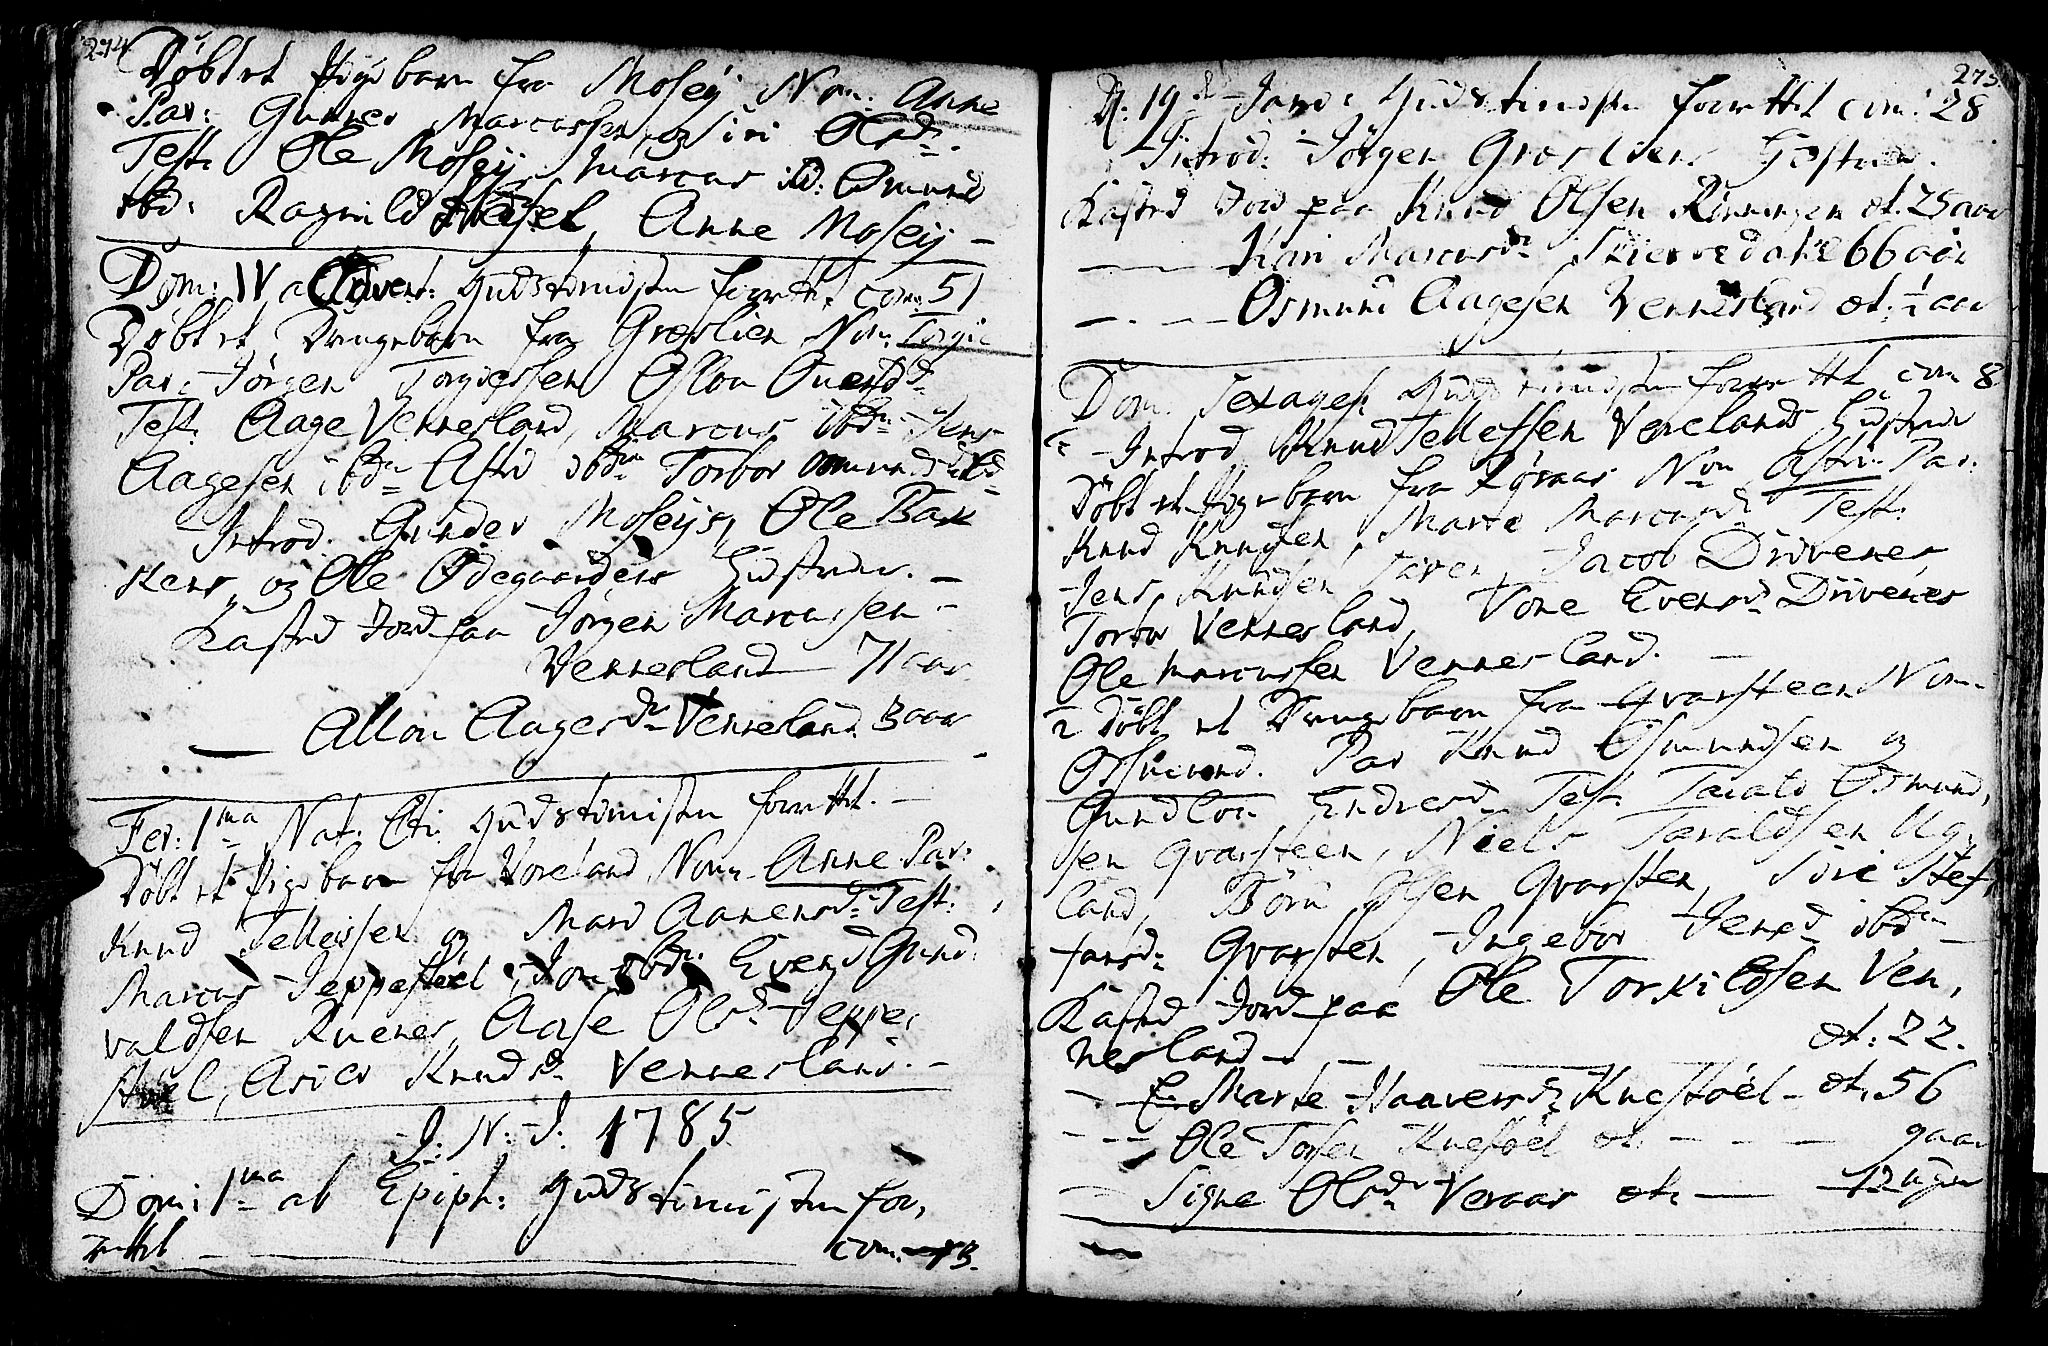 274
Døbt et Pigebarn fra Mosey Nom: Anne
Par: Gunder Marcussen og Siri Olsd.
Test: Ole Moseij, Marcus ibd: Osmund
ibd: Ragnild Anne Moseij –
Dom: IV Advent: Gudstienisten forrettet com: 51
Døbt et Drengebarn fra Groslien Nom: Torgie
Par: Jørgen Torgiessen Aslou Ouensd
Test: Aage Vennesland, Marcus ibdm Jens
Aagesen ibdm Astri ibdm Torbor Osmundsd ibd
Introd. Gunder Moseijs, Ole Bak
kens, og Ole Ødegaardens Hustruer. –
Kasted Jord paa Jørgen Marcussen –
Vennesland 71 aar
— Allou Aagesdr Vennesland 3 aar
Fer: 1ma Nat: Cti: Gudstienisten forrettet. –
Døbt et Pigebarn fra Voreland Nom Anne Par:
Knud Tellefsen og Mari Aanensd: Test:
Marcus Jeppestøel, Jon ibdm Evend Gund:
valdsen Ruenes, Aase Olsd Jeppe,
støel, Asier Knudsd Vennesland. –
J: N: J: 1785
Dom: 1ma ab Epiph: Gudstienisten for,
rettet — com. 13.
275
D: 19de Janv: Gudstienisten forrettet com: 28
Introd: Jørgen Grosliens Hustrue.
Kasted Jord paa Knud Olsen Rønningen æt. 25 aar
— Kari Marcusdr Skierredal æt 66 aar
— Osmund Aagesen Vennesland æt: ½ aar
Dom. Sexages: Gudstienisten forrettet com 8
Introd Knud Tellefsen Verelands Hustrue
Døbt et Pigebarn fra Røraas Nom Astri Par:
Knud Knudsen, Marte Marcusd Test:
Jens Knudsen Jacob Drivenes,
Torbor Vennesland, Tone Evensd Drivenes
Ole Marcussen Vennesland. –
2 Døbt et Drengebarn fra Qvarsteen Nom
Osmund. Par Knud Osmundsen og
Gundlou Endresd Test. Taralt Osmund,
sen Qvarsteen, Niels Taraldsen Ug,
land, Børu Olsen Qvarsten, Siri Stef,
fansd: Qvarsten, Ingebor Jensd ibdm
Kasted Jord paa Ole Torkildsen Ven,
nesland – — æt: 22.
– Marte Haaversdr Knestøel – æt. 56
– – – Ole Torsen Knestøel æt. – – – 9 aar
— Signe Olsdr Veraas æt: — 12 uger